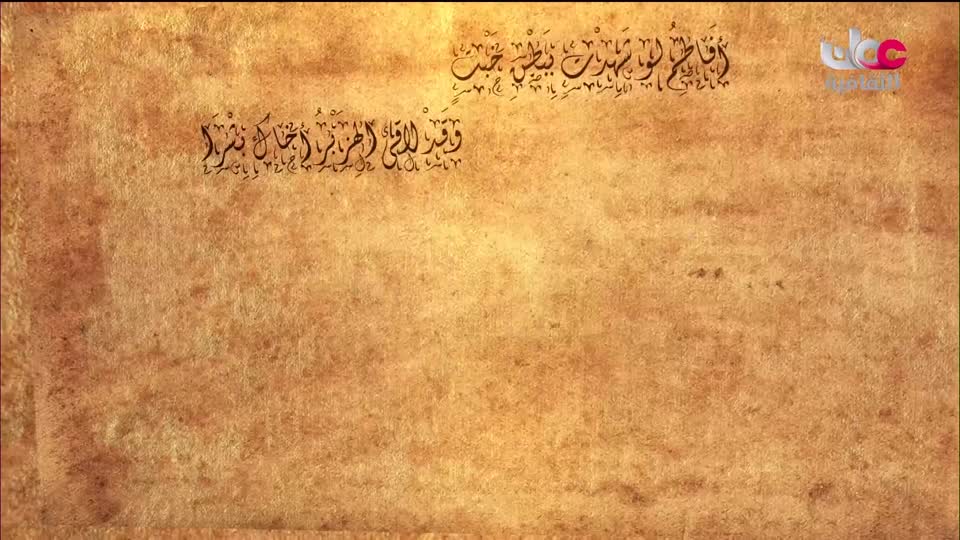 أَفَاطِمُ لَو شَهِدْتِ بِبَطْنِ خَبْتٍ
وَقَدْ لاقَى الهِزَبْرُ أَخَاكِ بِشْرَا
عمان
الثقافية